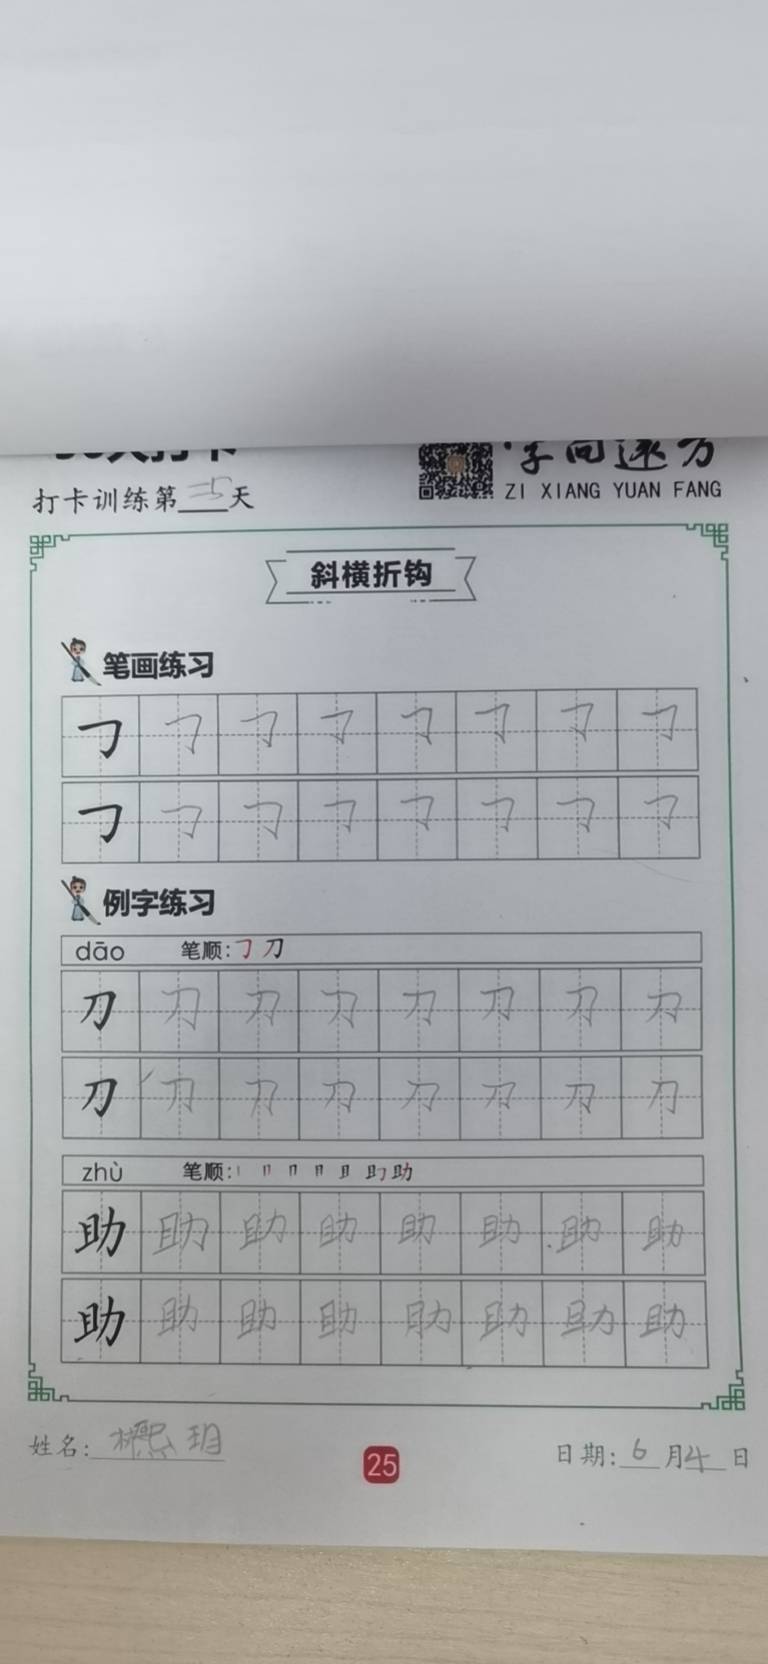 打卡训练第二5天
字向远方
ZI XIANG YUAN FANG
斜横折钩
笔画练习
例字练习
dāo 笔顺: 𠃌 刀
刀 刀 刀 刀 刀 刀 刀 刀
刀 刀 刀 刀 刀 刀 刀 刀
zhù 笔顺: 助
助 助 助 助 助 助 助 助
助 助 助 助 助 助 助 助
姓名: 25 日期: 6 月 4 日